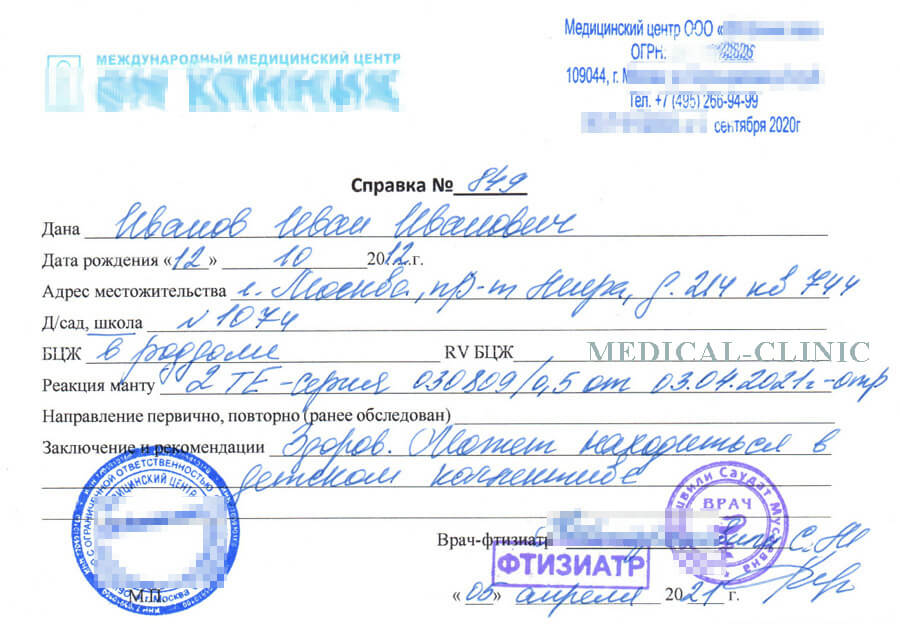 МЕЖДУНАРОДНЫЙ МЕДИЦИНСКИЙ ЦЕНТР
Медицинский центр ООО «
ОГРН:
109044, г.
Тел. +7 (495) 266-94-99
сентября 2020г
Справка № 849
Дана Иванов Иван Иванович
Дата рождения «12» 10 2012 г.
Адрес местожительства г. Москва, пр-т Мира, д. 214 кв 744
Д/сад, школа № 1074
БЦЖ в роддоме RV БЦЖ
MEDICAL-CLINIC
Реакция манту 2 ТЕ-серия 030809/0,5 от 03.04.2021г-отр
Направление первично, повторно (ранее обследован)
Заключение и рекомендации Здоров. Может находиться в
детском коллективе
С ОГРАНИЧЕННОЙ ОТВЕТСТВЕННОСТЬЮ
МЕДИЦИНСКИЙ ЦЕНТР
Москва
М.П.
Саудат Мусаевна
ВРАЧ
Врач-фтизиатр
ФТИЗИАТР
«05» апреля 2021 г.